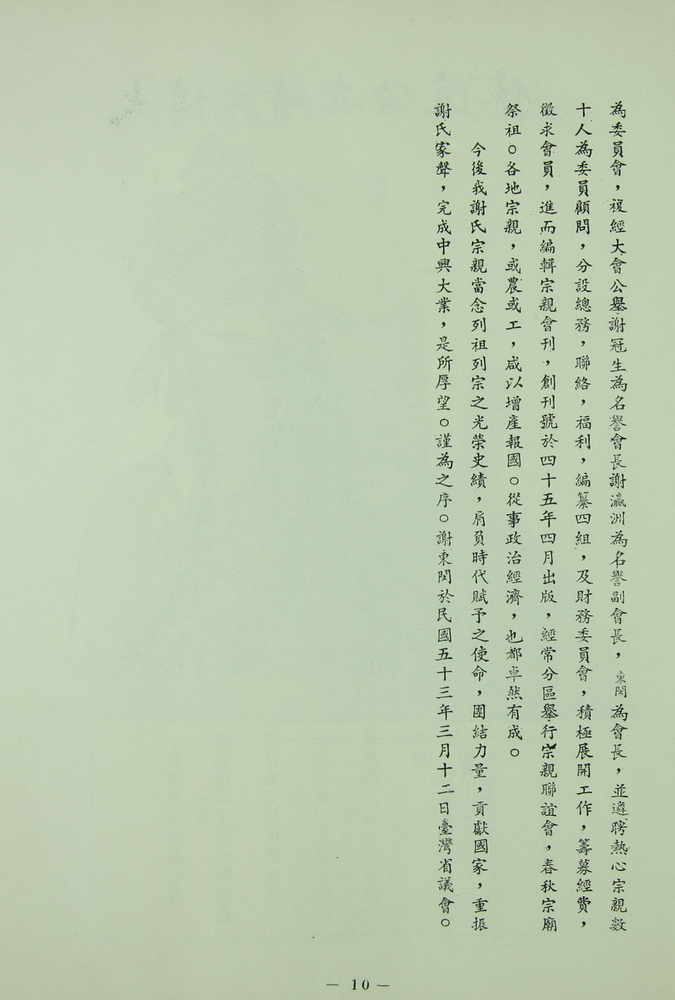 為委員會，複經大會公舉謝冠生為名譽會長謝瀛洲為名譽副會長，東閔為會長，並遴聘熱心宗親數
十人為委員顧問，分設總務，聯絡，福利，編纂四組，及財務委員會，積極展開工作，籌募經費，
徵求會員，進而編輯宗親會刊，創刊號於四十五年四月出版，經常分區舉行宗親聯誼會，春秋宗廟
祭祖。各地宗親，或農或工，咸以增產報國。從事政治經濟，也都卓然有成。
今後我謝氏宗親當念列祖列宗之光榮史績，肩員時代賦予之使命，團結力量，貢獻國家，重振
謝氏家聲，完成中興大業，是所厚望。謹為之序。謝東閔於民國五十三年三月十二日臺灣省議會。
— 10 —